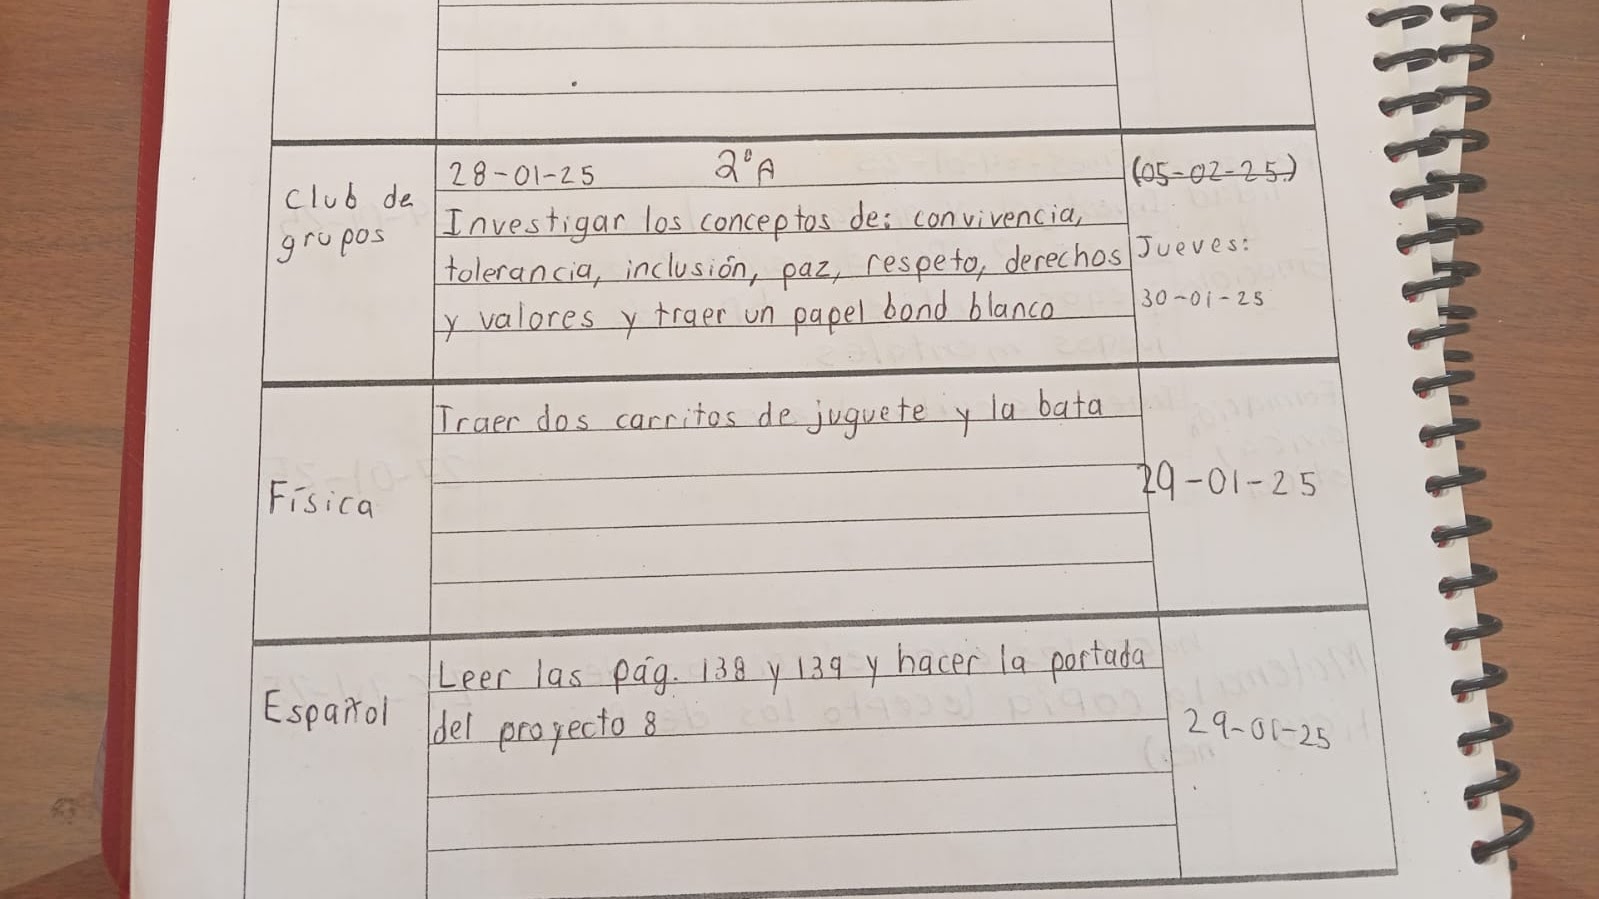 28-01-25 2°A (05-02-25)
Club de grupos
Investigar los conceptos de: convivencia,
tolerancia, inclusión, paz, respeto, derechos
y valores y traer un papel bond blanco
Jueves:
30-01-25
Física
Traer dos carritos de juguete y la bata
29-01-25
Español
Leer las pág. 138 y 139 y hacer la portada
del proyecto 8
29-01-25